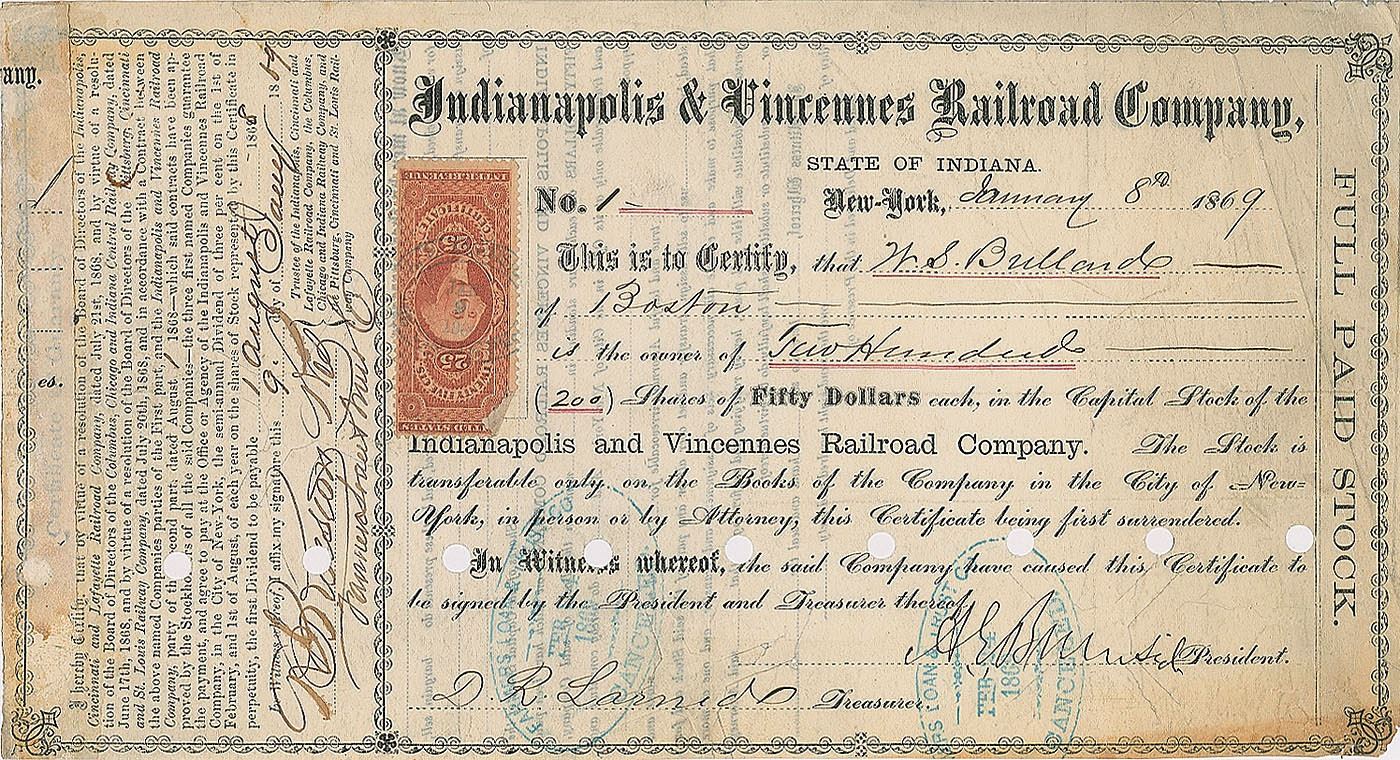 any.
es.
I hereby Certify, that by virtue of a resolution of the Board of Directors of the Indianapolis,
Cincinnati and Lafayette Railroad Company, dated July 21st, 1868, and by virtue of a resolu-
tion of the Board of Directors of the Columbus, Chicago and Indiana Central Railway Company, dated
June 17th, 1868, and by virtue of a resolution of the Board of Directors of the Pittsburg, Cincinnati
and St. Louis Railway Company, dated July 20th, 1868, and in accordance with a Contract between
the above named Companies parties of the First part, and the Indianapolis and Vincennes Railroad
Company, party of the second part, dated August 1 1868—which said contracts have been ap-
proved by the Stockholders of all the said Companies—the three first named Companies guarantee
the payment, and agree to pay at the Office or Agency of the Indianapolis and Vincennes Railroad
Company, in the City of New-York, the semi-annual Dividend of three per cent on the 1st of
February, and 1st of August, of each year on the shares of Stock represented by this Certificate in
perpetuity, the first Dividend to be payable 1 August 1868
In Witness whereof I affix my signature this 9th day of Jany 1869
Trustee of the Indianapolis, Cincinnati and
Lafayette Railroad Company, the Columbus,
Chicago and Indiana Central Railway Company and
the Pittsburg, Cincinnati and St. Louis Rail-
way Company
Indianapolis & Vincennes Railroad Company,
STATE OF INDIANA.
No. 1 New-York, January 8th 1869
This is to Certify, that W. S. Bullard
of Boston
is the owner of Two Hundred
(200) Shares of Fifty Dollars each, in the Capital Stock of the
Indianapolis and Vincennes Railroad Company. The Stock is
transferable only on the Books of the Company in the City of New-
York, in person or by Attorney, this Certificate being first surrendered.
In Witness whereof, the said Company have caused this Certificate to
be signed by the President and Treasurer thereof.
A E Burnside President.
D. R. Larned Treasurer
FULL PAID STOCK.
25
25